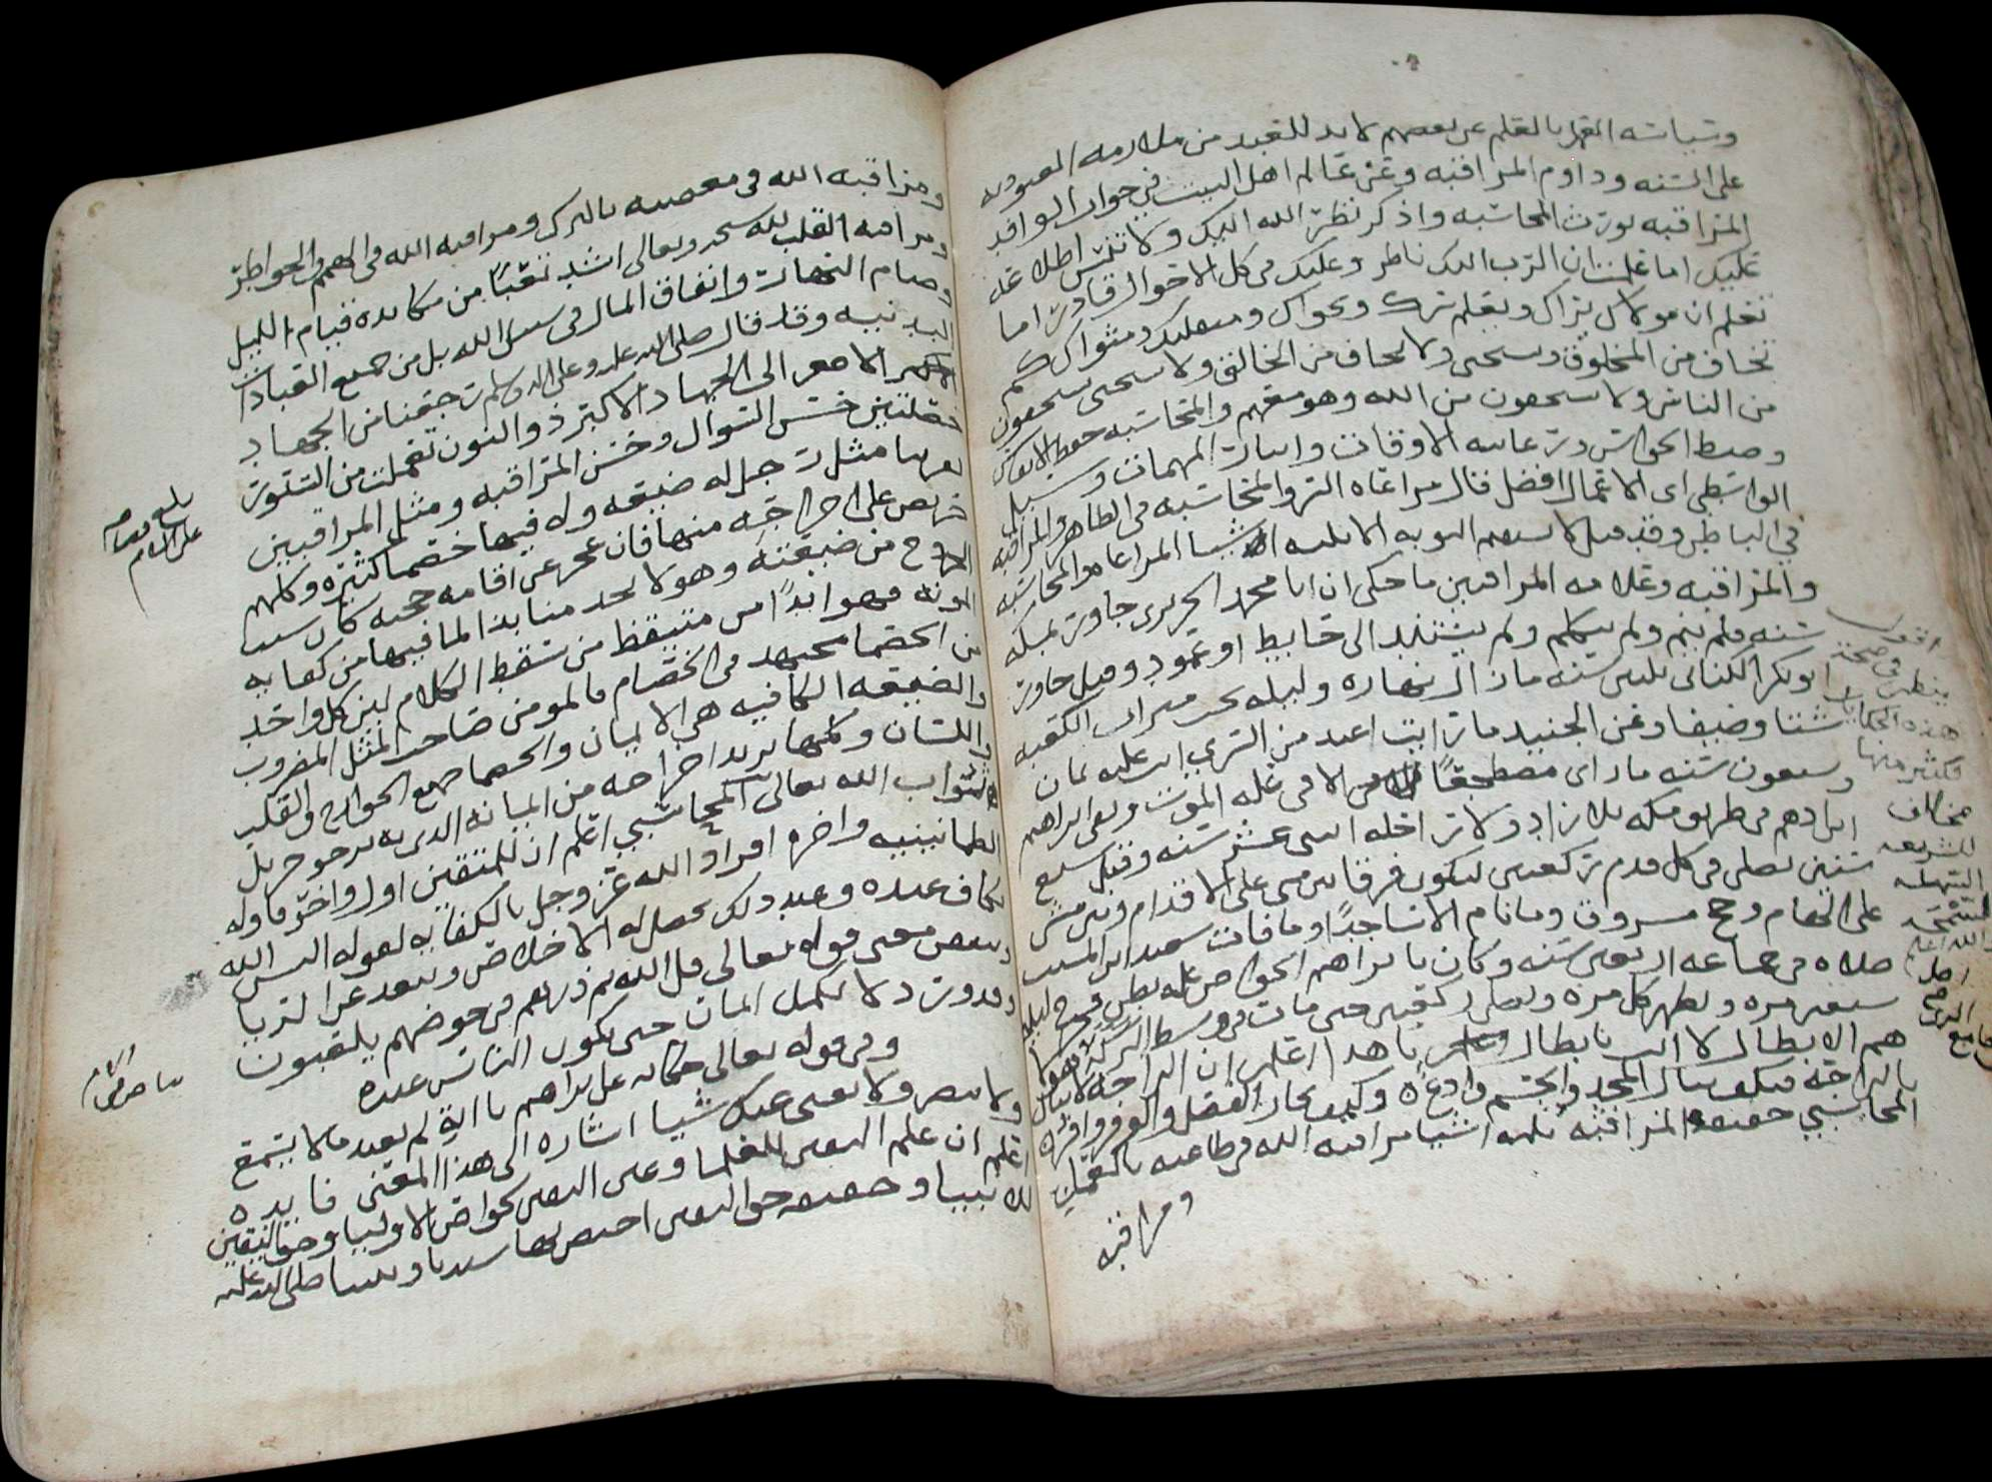 وسياسه القهر بالعلم عن بعضهم لا بد للعبد من ملازمه العبوديه
على السنه ودوام المراقبه وعن عالم اهل البيت في جواب الوافد
المراقبه تورث المحاسبه واذكر نظر الله اليك ولا تنس اطلاعه
عليك اما علمت ان الرب اليك ناظر وعليك في كل الاحوال قادر اما
تعلم ان مولاك يراك ويعلم سرك ونجواك ومنقلبك ومثواك كم
تخاف من المخلوق وتستحي ولا تخاف من الخالق ولا تستحي يستخفون
من الناس ولا يستخفون من الله وهو معهم والمحاسبه حفظ الانفاس
وضبط الحواس ورعايه الاوقات وايثار المهمات وسيل
الواسطي اي الاعمال افضل قال مراعاه السر والمحاسبه في الظاهر والمراقبه
في الباطن وقد قيل لا يستقيم التوبه الا بثلاثه اشيا المراعاه والمحاسبه
والمراقبه وعلامه المراقبين ما حكي ان ابا محمد الجريري جاور بمكه
سنه فلم ينم ولم يتكلم ولم يستند الى حايط او عمود وقيل جاور
ابو بكر الكتاني ثلثين سنه مازال نهاره وليله تحت ميزاب الكعبه
شتا وصيفا وعن الجنيد ما رايت اعبد من السري اتت عليه ثمان
وسبعون سنه ما راى مضطجعا الا في عله الموت وبقى ابراهيم
ابن ادهم في طريق مكه بلا زاد ولا راحله اثني عشر سنه وقيل سبع
سنين يصلي في كل قدم ركعتين ليكون فرقا بين من مشى على الاقدام وبين من مشى
على الهام وحج مسروق وما نام الا ساجدا وما فاتت سعيد ابن المسيب
صلاه في جماعه اربعين سنه وكان بابراهيم الخواص عله بطن فقام ليله
سبعين مره وتطهر كل مره وصلى ركعتين حتى مات في وسط البركه هولا
هم الابطال لا انت يا بطال يا هذا اعلم ان الراحه لا تنال
بالراحه فكيف ينال المجد والجسم وادع وكيف يحاز الفضل والوفر وافر
المحاسبي حقيقه المراقبه ثلاثه اشيا مراقبه الله في طاعته بالعمل
ومراقبه
اقول
ينظر في صحه
هذه الحكايات
فكثير منها
مخالف
للشريعه
السهله
السمحه
والله اعلم
ومراقبه الله في معصيته بالترك ومراقبه الله في الهمم والخواطر
ومراقبه القلب لله سبحنه وتعالى اشد تعبا من مكابده قيام الليل
وصيام النهار وانفاق المال في سبيل الله بل من جميع العبادات
البدنيه وقد قال صلى الله عليه وعلى اله وسلم رجعنا من الجهاد
الاصغر الى الجهاد الاكبر ذو النون تعملت من السنور
خصلتين حسن السوال وحسن المراقبه ومثل المراقبين
مثل رجل له ضيعه وله فيها خصما كثيره وكلهم
حريص على اخراجه منها فان عجز عن اقامه حججه كان سبب
الخروج من ضيعته وهو لا يجد منها بدا لما فيها من كفايه
المونه فهو ابدا متيقظ من سقط الكلام بين كل واحد
من الخصما مجتهد في الخصام فالمومن صاحب المثل المضروب
والضيعه الكافيه هي الايمان والخصما جميع الجوارح والقلب
واللسان وكلها يريد اخراجه من ايمانه الذي به يرجو جزيل
ثواب الله تعالى المحاسبي اعلم ان للمتقين اول واخر فاوله
الطمانينيه واخره افراد الله عز وجل بالكفايه لقوله اليس الله
بكاف عبده وعند ذلك يحصل له الاخلاص ويبعد عن الريا
وبعض معنى قوله تعالى قل الله ثم ذرهم في خوضهم يلعبون
وقد ورد لا يكمل ايمان حتى يكون الناس عنده
وفي قوله تعالى حكايه عن ابراهيم يا ابت لم تعبد ما لا يسمع
ولا يبصر ولا يغني عنك شيا اشاره الى هذا المعنى فايده
اعلم ان علم اليقين للعلما وعين اليقين لخواص الاوليا وحق اليقين
للانبيا وحقيقه حق اليقين اختص بها سيدنا ونبينا صلى الله عليه